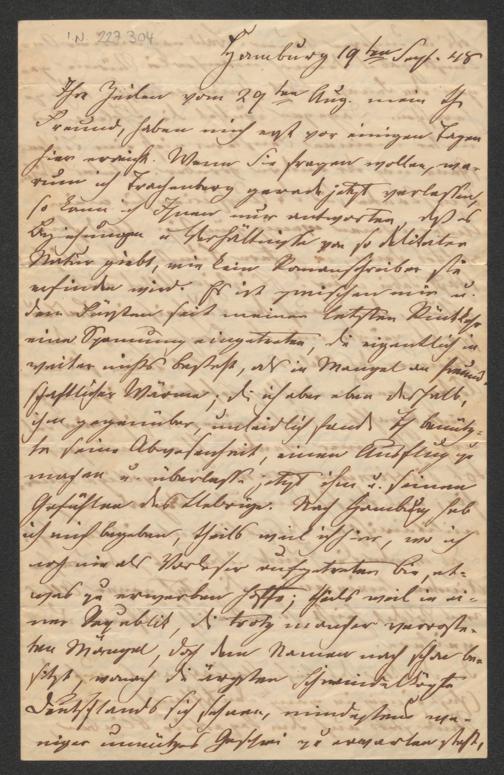 I.N. 227.304
Hamburg 19ten Sept. 48
Ihre Zeilen vom 29ten Aug. mein
Freund, haben mich erst vor einigen Tagen
hier erreicht. Wenn Sie fragen wollen, wa-
rum ich Trachenberg gerade jetzt verlassen,
so kann ich Ihnen nur antworten, daß es
Beziehungen u Verhältnisse von so delikater
Natur giebt, wie kein Romanschreiber sie
erfinden wird. Es ist zwischen mir u.
dem Fürsten seit meiner letzten Rückkehr
eine Spannung eingetreten, die eigentlich in
weiter nichts besteht, als in Mangel an freund-
schaftlicher Wärme; die ich aber eben deshalb,
ihm gegenüber, unleidlich fand. Ich benütz-
te seine Abwesenheit, einen Ausflug zu
machen u. überlasse jetzt ihm u. seinen
Gefühlen das Uebrige. Nach Hamburg hab
ich mich begeben, theils weil ich hier, wo ich
noch nie als Vorleser aufgetreten bin, et-
was zu erwerben hoffe; theils weil in ei-
ner Republik, die trotz mancher verroste-
ten Mängel, doch dem Namen nach schon be-
sitzt, wonach die ärgsten Schwindelköpfe
Deutschlands sich sehnen, mindestens we-
niger unnützes Geschrei zu erwarten steht,